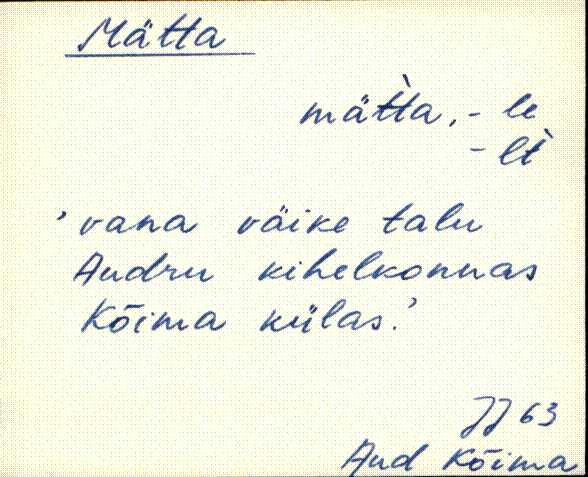 Mätta
mät̀ta, - le
- lt̀
'vana väike talu
Audru kihelkonnas
Kõima külas.'
JJ 63
Aud Kõima